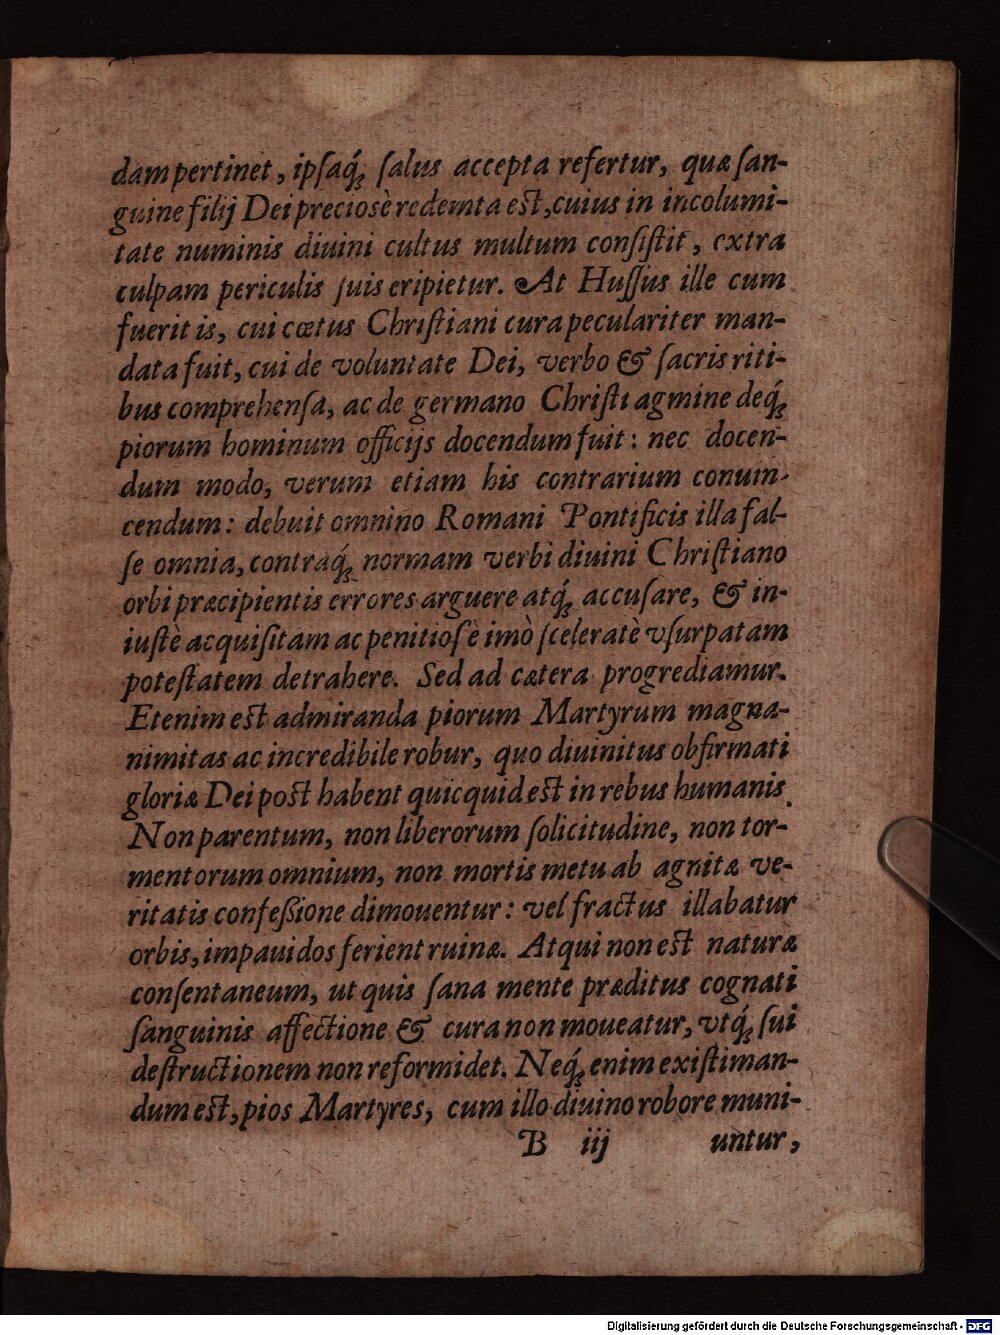 dam pertinet, ipſaq́ꝫ ſalus accepta refertur, quæ ſan-
guine filij Dei preciosè redemta eſt, cuius in incolumi-
tate numinis diuini cultus multum conſiſtit, extra
culpam periculis ſuis eripietur. At Huſſus ille cum
fuerit is, cui cœtus Chriſtiani cura peculariter man-
data fuit, cui de voluntate Dei, verbo & ſacris riti-
bus comprehenſa, ac de germano Chriſti agmine deq́ꝫ
piorum hominum officijs docendum fuit: nec docen-
dum modo, verum etiam his contrarium conuin-
cendum: debuit omnino Romani Pontificis illa fal-
ſe omnia, contraq́ꝫ normam verbi diuini Chriſtiano
orbi præcipientis errores arguere atq́ꝫ accuſare, & in-
iuſtè acquiſitam ac penitioſè imò ſceleratè vſurpatam
poteſtatem detrahere. Sed ad cætera progrediamur.
Etenim eſt admiranda piorum Martyrum magna-
nimitas ac incredibile robur, quo diuinitus obfirmati
gloriæ Dei poſt habent quicquid eſt in rebus humanis.
Non parentum, non liberorum ſolicitudine, non tor-
mentorum omnium, non mortis metu ab agnitæ ve-
ritatis confeſſione dimouentur: vel fractus illabatur
orbis, impauidos ferient ruinæ. Atqui non eſt naturæ
conſentaneum, ut quis ſana mente præditus cognati
ſanguinis affectione & cura non moueatur, vtq́ꝫ ſui
deſtructionem non reformidet. Neq́ꝫ enim exiſtiman-
dum eſt, pios Martyres, cum illo diuino robore muni-
B iij untur,
Digitalisierung gefördert durch die Deutsche Forschungsgemeinschaft - DFG